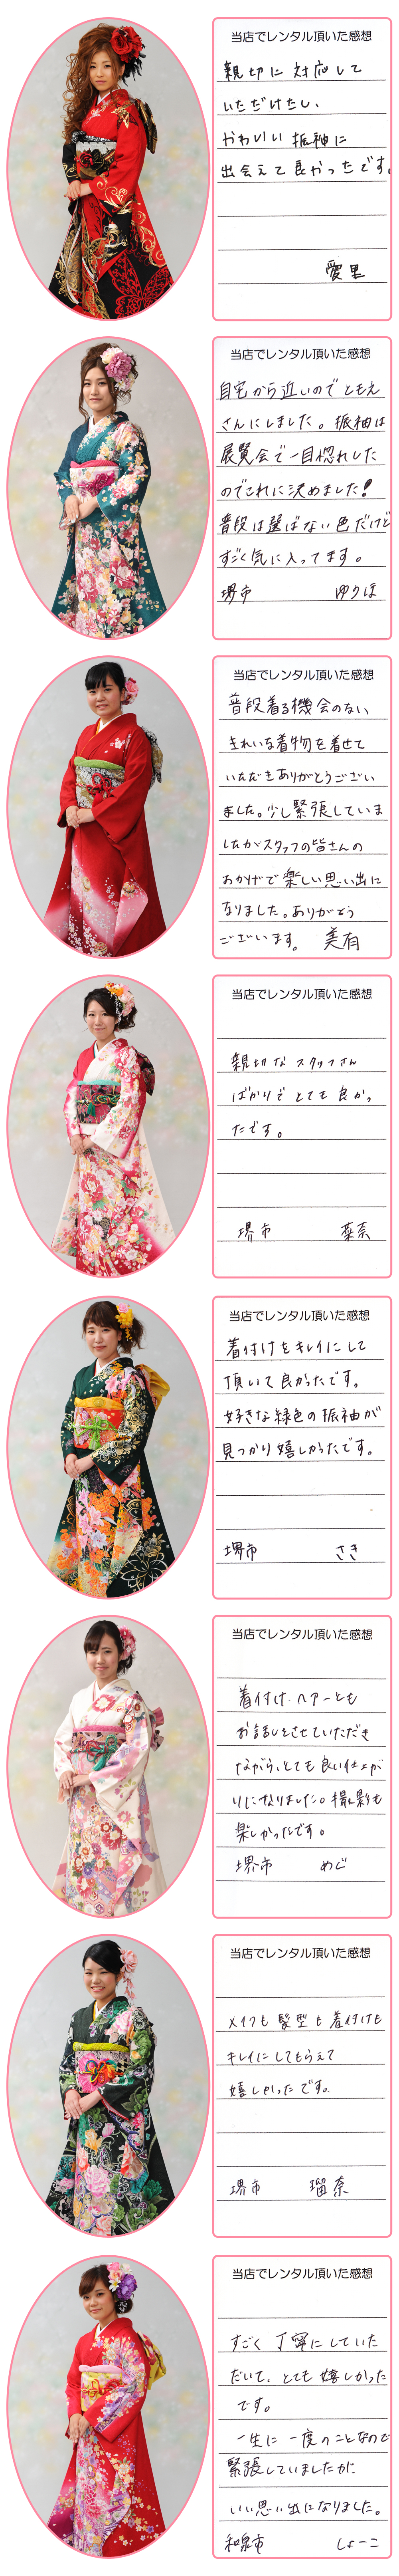 当店でレンタル頂いた感想
親切に対応して
いただけたし、
かわいい振袖に
出会えて良かったです。
愛里
当店でレンタル頂いた感想
自宅から近いのでともえ
さんにしました。振袖は
展覧会で一目惚れした
のでこれに決めました!
普段は選ばない色だけど
すごく気に入ってます。
堺市 ゆりほ
当店でレンタル頂いた感想
普段着る機会のない、
きれいな着物を着せて
いただきありがとうござい
ました。少し緊張していま
したがスタッフの皆さんの
おかげで楽しい思い出に
なりました。ありがとう
ございます。 美有
当店でレンタル頂いた感想
親切なスタッフさん
ばかりでとても良かっ
たです。
堺市 菜奈
当店でレンタル頂いた感想
着付けをキレイにして
頂いて良かったです。
好きな緑色の振袖が
見つかり嬉しかったです。
堺市 さき
当店でレンタル頂いた感想
着付け・ヘアーとも
お話しをさせていただき
ながら、とても良い仕上が
りになりました。撮影も
楽しかったです。
堺市 めぐ
当店でレンタル頂いた感想
メイクも髪型も着付けも
キレイにしてもらえて
嬉しかったです。
堺市 瑠奈
当店でレンタル頂いた感想
すごく丁寧にしていた
だいて、とても嬉しかった
です。
一生に一度のことなので
緊張していましたが
いい思い出になりました。
和泉市 しょーこ